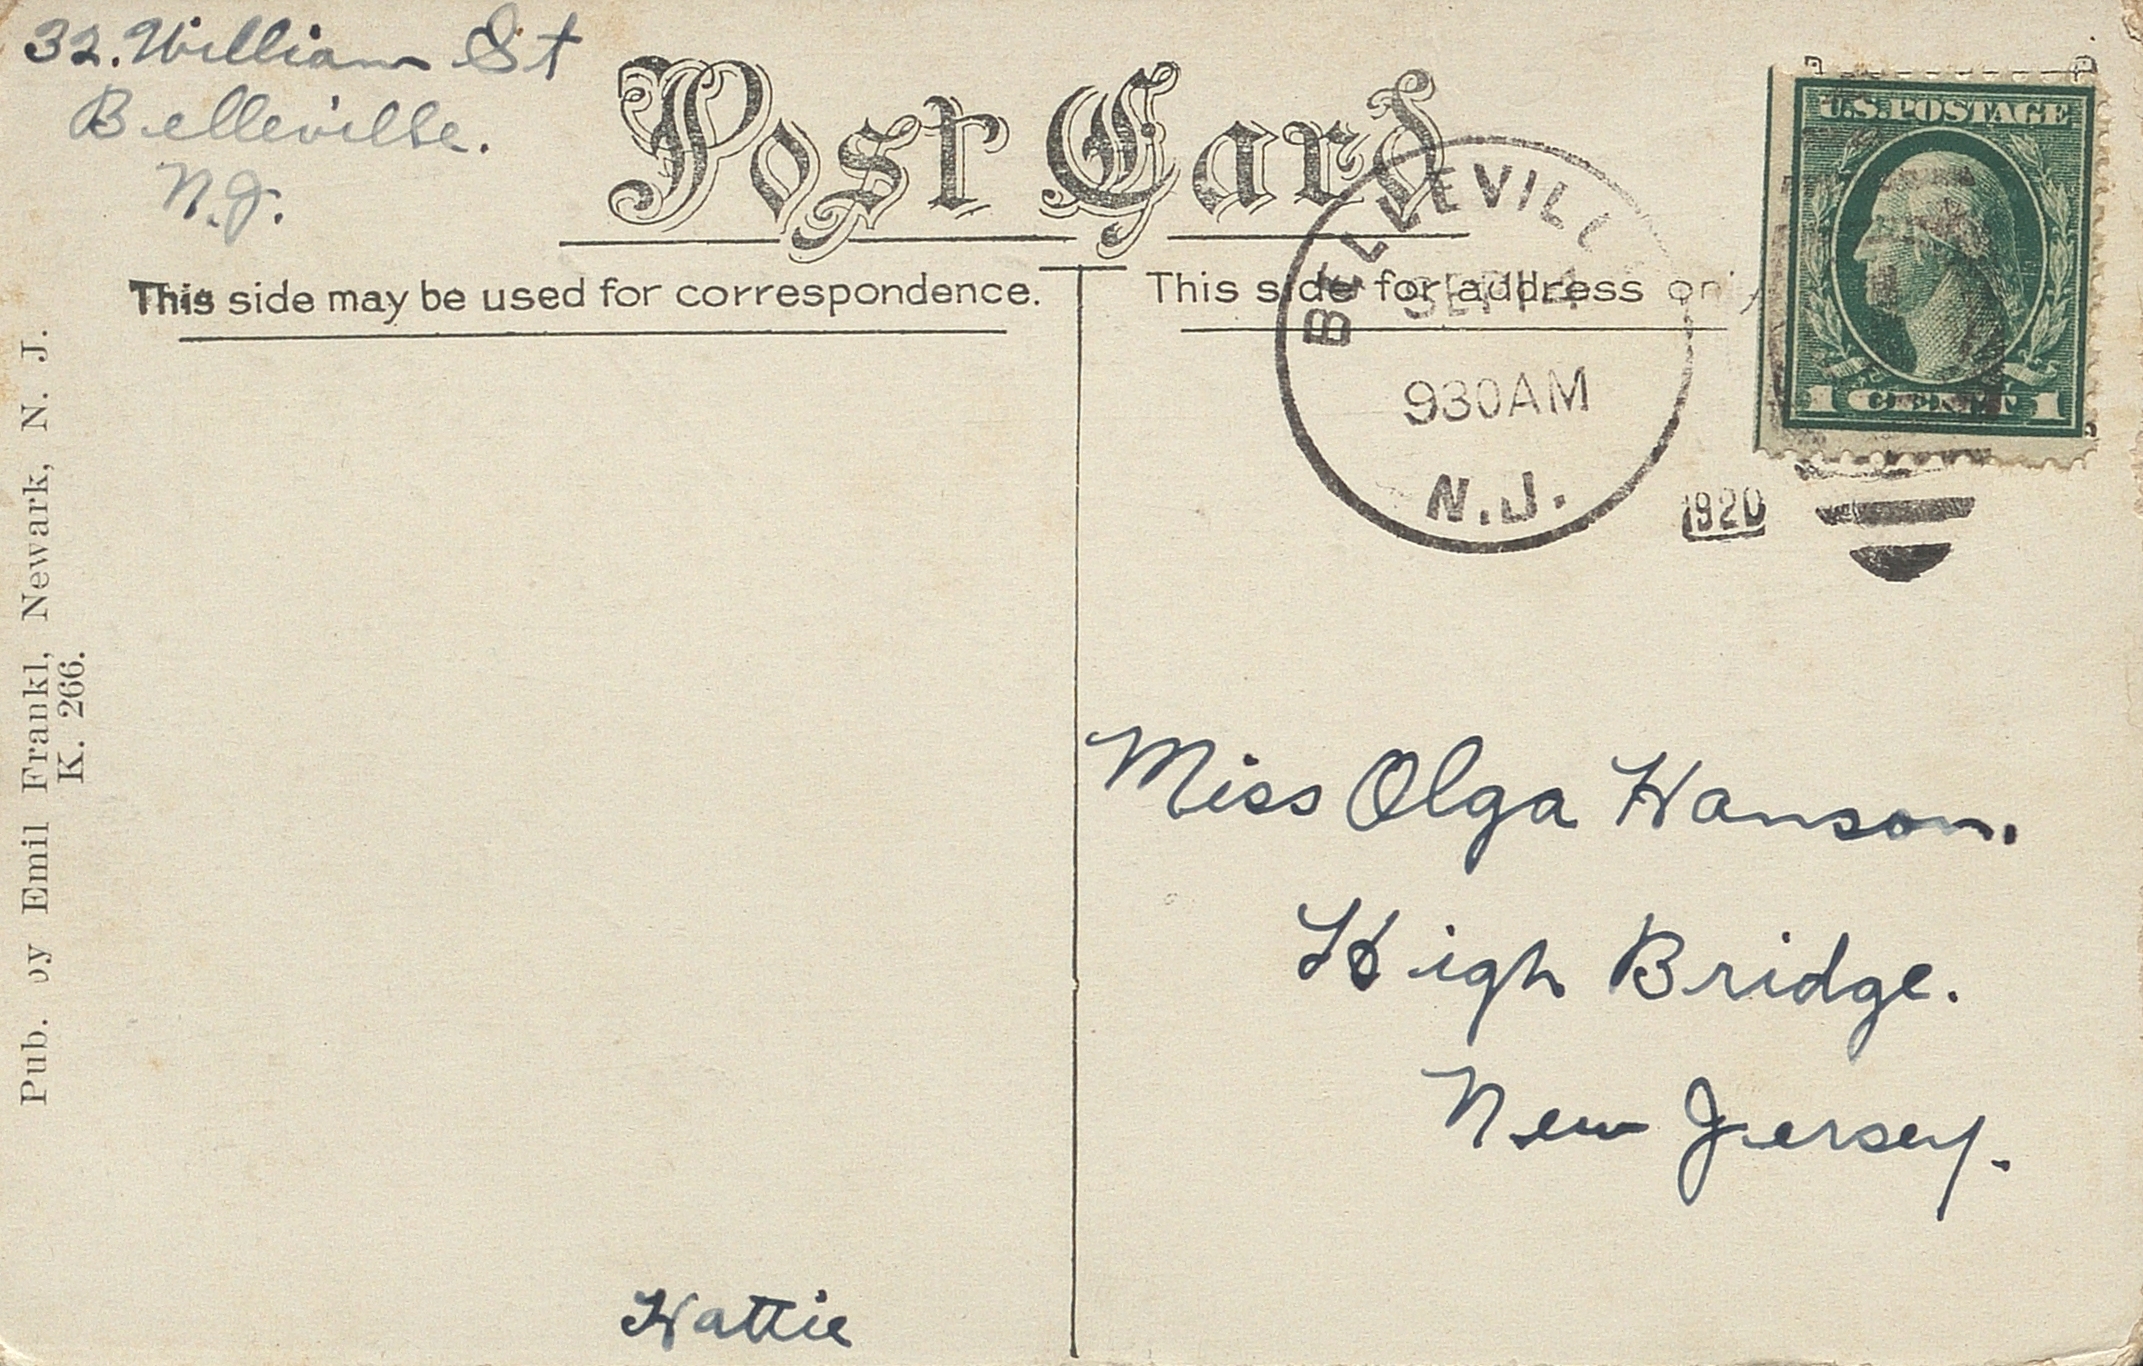 32. William St
Belleville.
N.J.
Post Card
This side may be used for correspondence.
This side for address only
BELLEVILL
SEP 14
930AM
N.J.
1920
U.S.POSTAGE
1 CENT 1
Pub. by Emil Frankl, Newark, N. J.
K. 266.
Miss Olga Hanson.
High Bridge.
New Jersey.
Hattie